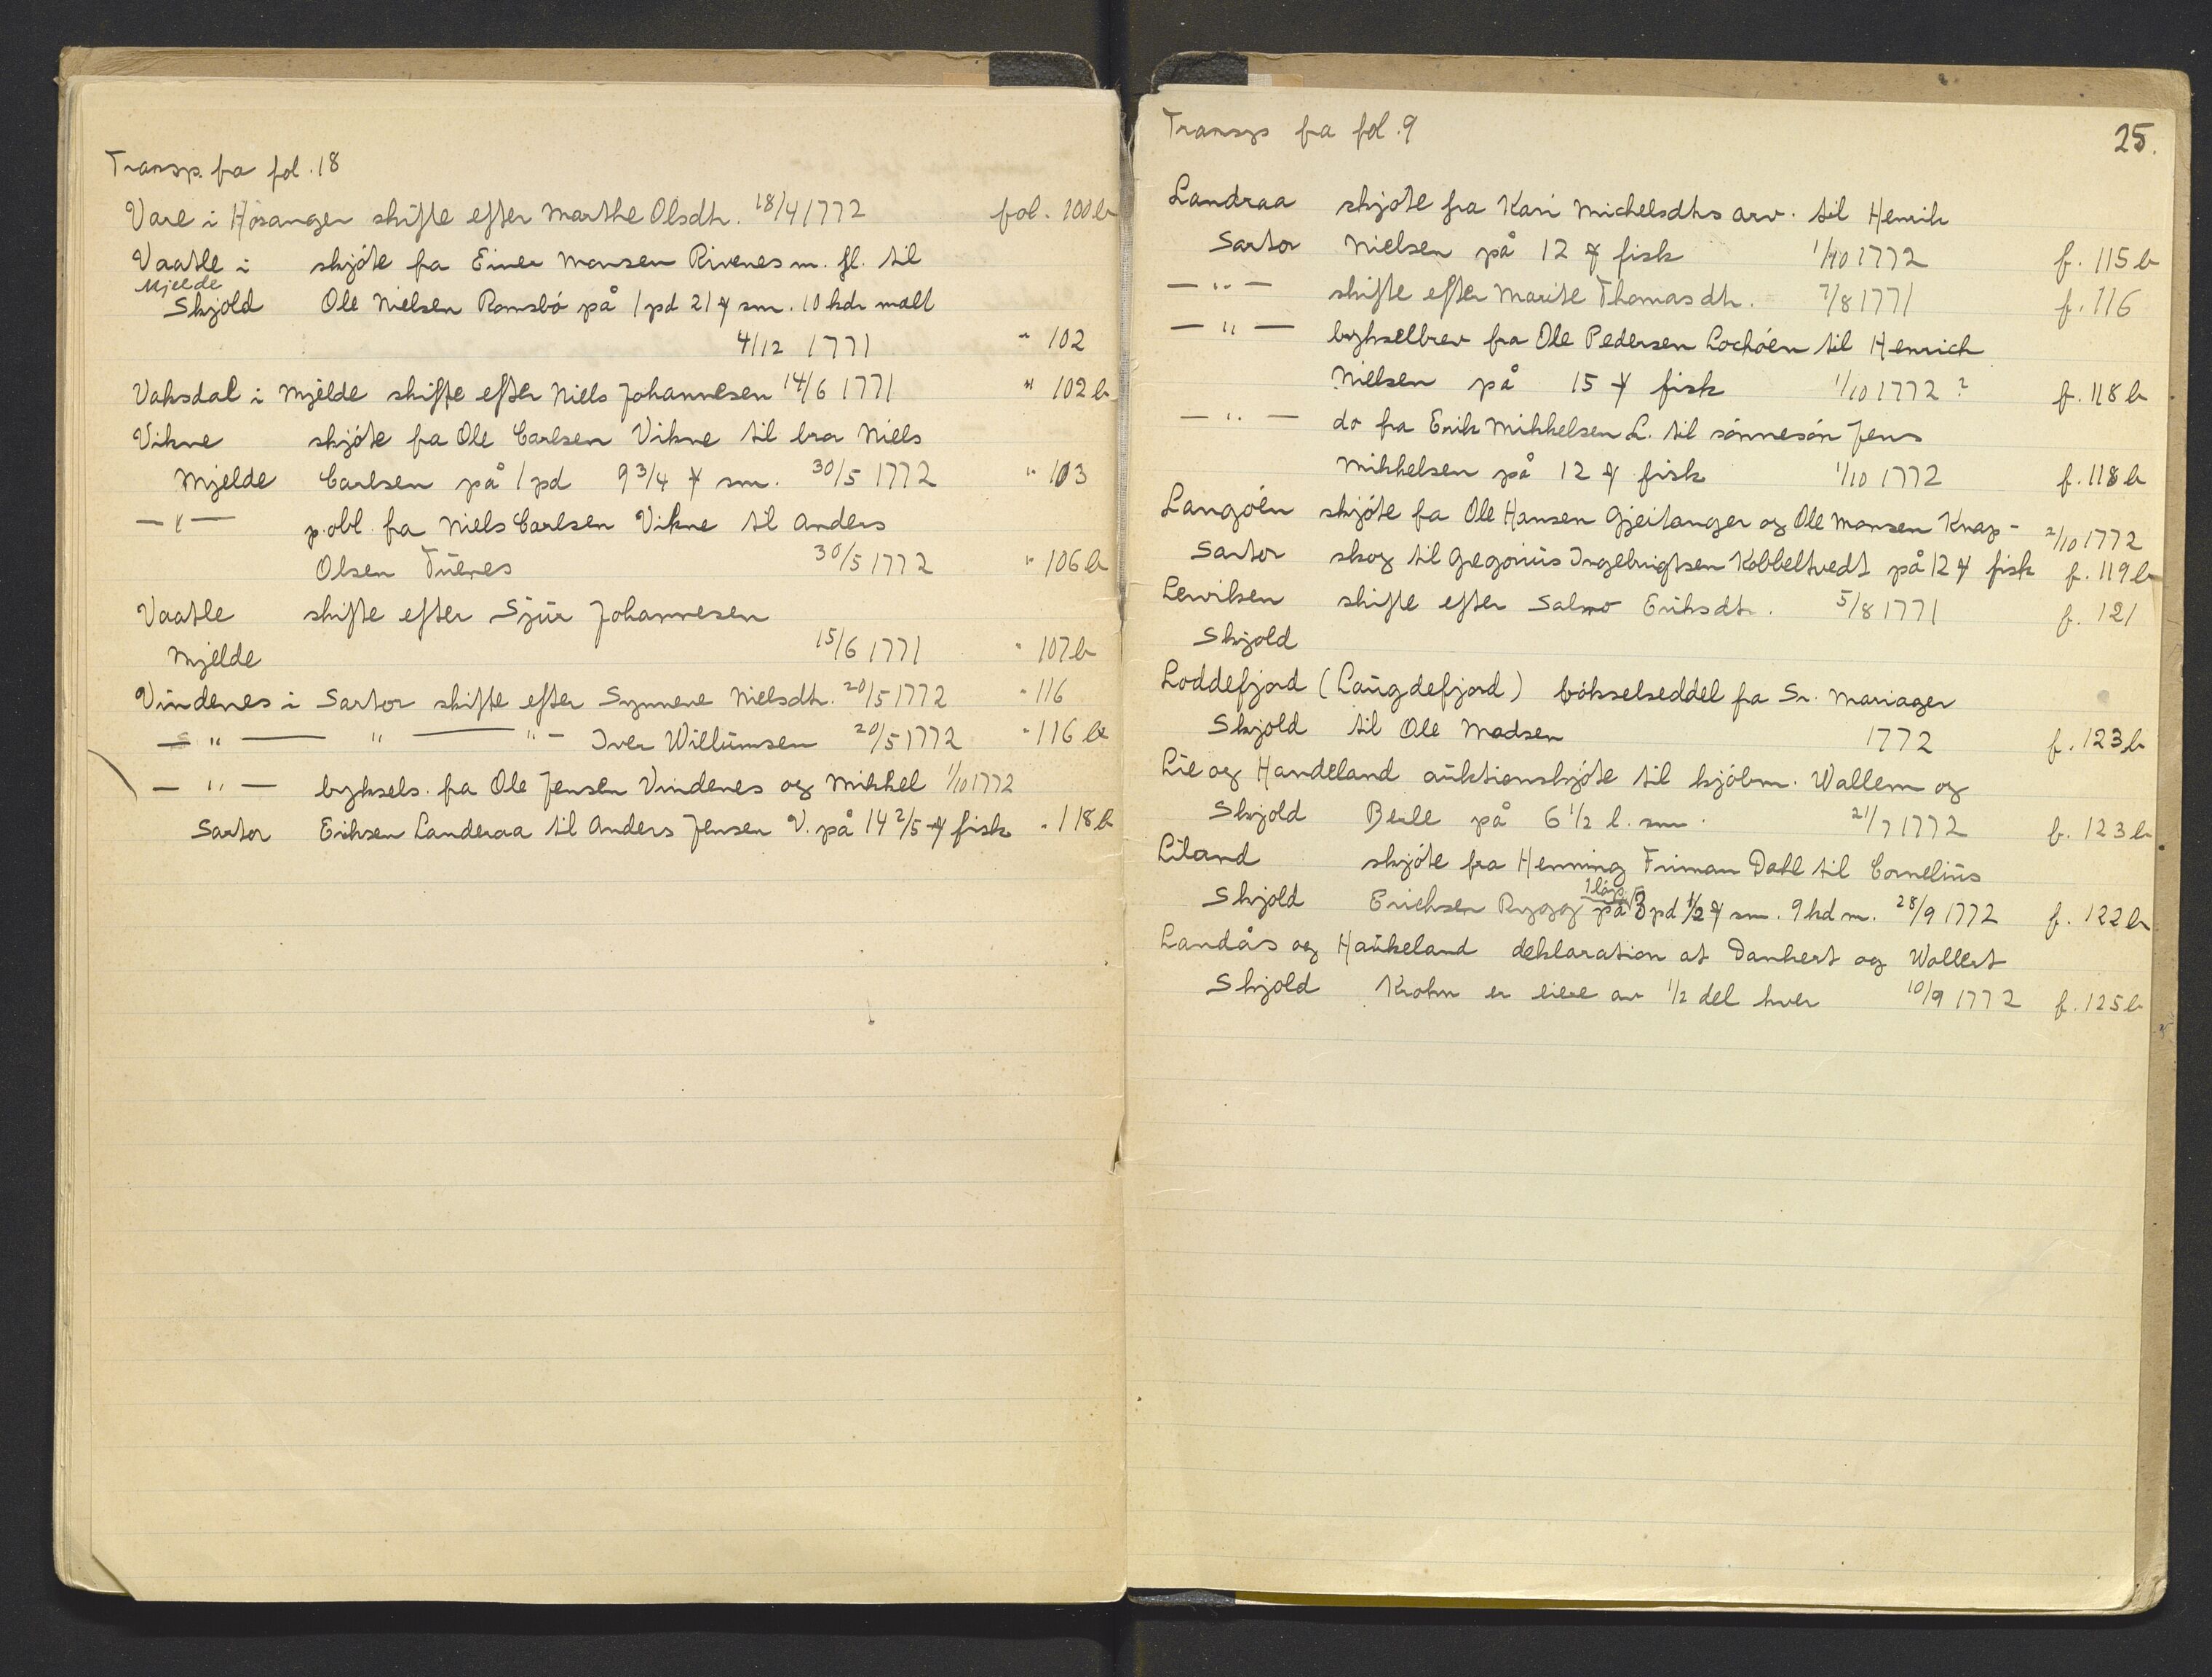 Transp. fra fol. 18
Vare i Hosanger skifte efter Marthe Olsdtr. 18/4 1772 fol. 100 b
Vaatle i skjóte fra Einer Monsen Rivenes m. fl. til
Mjelde
Skjold Ole Nielsen Romsbó på 1 pd 21 ℔ sm. 10 kdr malt
4/12 1771 " 102
Vaksdal i Mjelde skifte efter Niels Johannesen 14/6 1771 " 102 b
Vikne skjóte fra Ole Carlsen Vikne til bror Niels
Mjelde Carlsen på 1 pd 9 3/4 ℔ sm. 30/5 1772 " 103
— " — p. obl. fra Niels Carlsen Vikne til Anders
Olsen Tuenes 30/5 1772 " 106 b
Vaatle skifte efter Sjur Johannesen
Mjelde 15/6 1771 " 107 b
Vindenes i Sartor skifte efter Synneve Nielsdtr. 20/5 1772 " 116
— " — " — " — Iver Willumsen 20/5 1772 " 116 b
— " — byksels. fra Ole Jensen Vindenes og Mikkel 1/10 1772
Sartor Eriksen Landeraa til Anders Jensen V. på 14 2/5 ℔ fisk " 118 b
Transp fra fol. 9 25.
Landraa skjóte fra Kari Michelsdtrs arv. til Henrik
Sartor Nielsen på 12 ℔ fisk 1/10 1772 f. 115 b
— " — skifte efter Marite Thomasdtr. 7/8 1771 f. 116
— " — bykselbrev fra Ole Pedersen Lochóen til Henrich
Nielsen på 15 ℔ fisk 1/10 1772 ? f. 118 b
— " — do fra Erik Mikkelsen L. til sónnesón Jens
Mikkelsen på 12 ℔ fisk 1/10 1772 f. 118 b
Langóen skjóte fra Ole Hansen Gjeitanger og Ole Monsen Knap- 2/10 1772
Sartor skog til Gregorius Ingebrigtsen Kobbeltvedt på 12 ℔ fisk f. 119 b
Lerviken skifte efter Salmo Eriksdtr. 5/8 1771 f. 121
Skjold
Loddefjord (Laugdefjord) bókselseddel fra Sr. Mariager
Skjold til Ole Madsen 1772 f. 123 b
Lie og Handeland auktionskjóte til kjóbm. Wallem og
Skjold Berle på 6 1/2 l. sm. 21/7 1772 f. 123 b
Liland skjóte fra Henning Friman Dahl til Cornelius
1 láp
Skjold Erichsen Rygg på 3 pd 1/2 ℔ sm. 9 kd m. 28/9 1772 f. 122 b
Landås og Haukeland deklaration at Dankert og Wollert
Skjold Krohn er eiere av 1/2 del hver 10/9 1772 f. 125 b